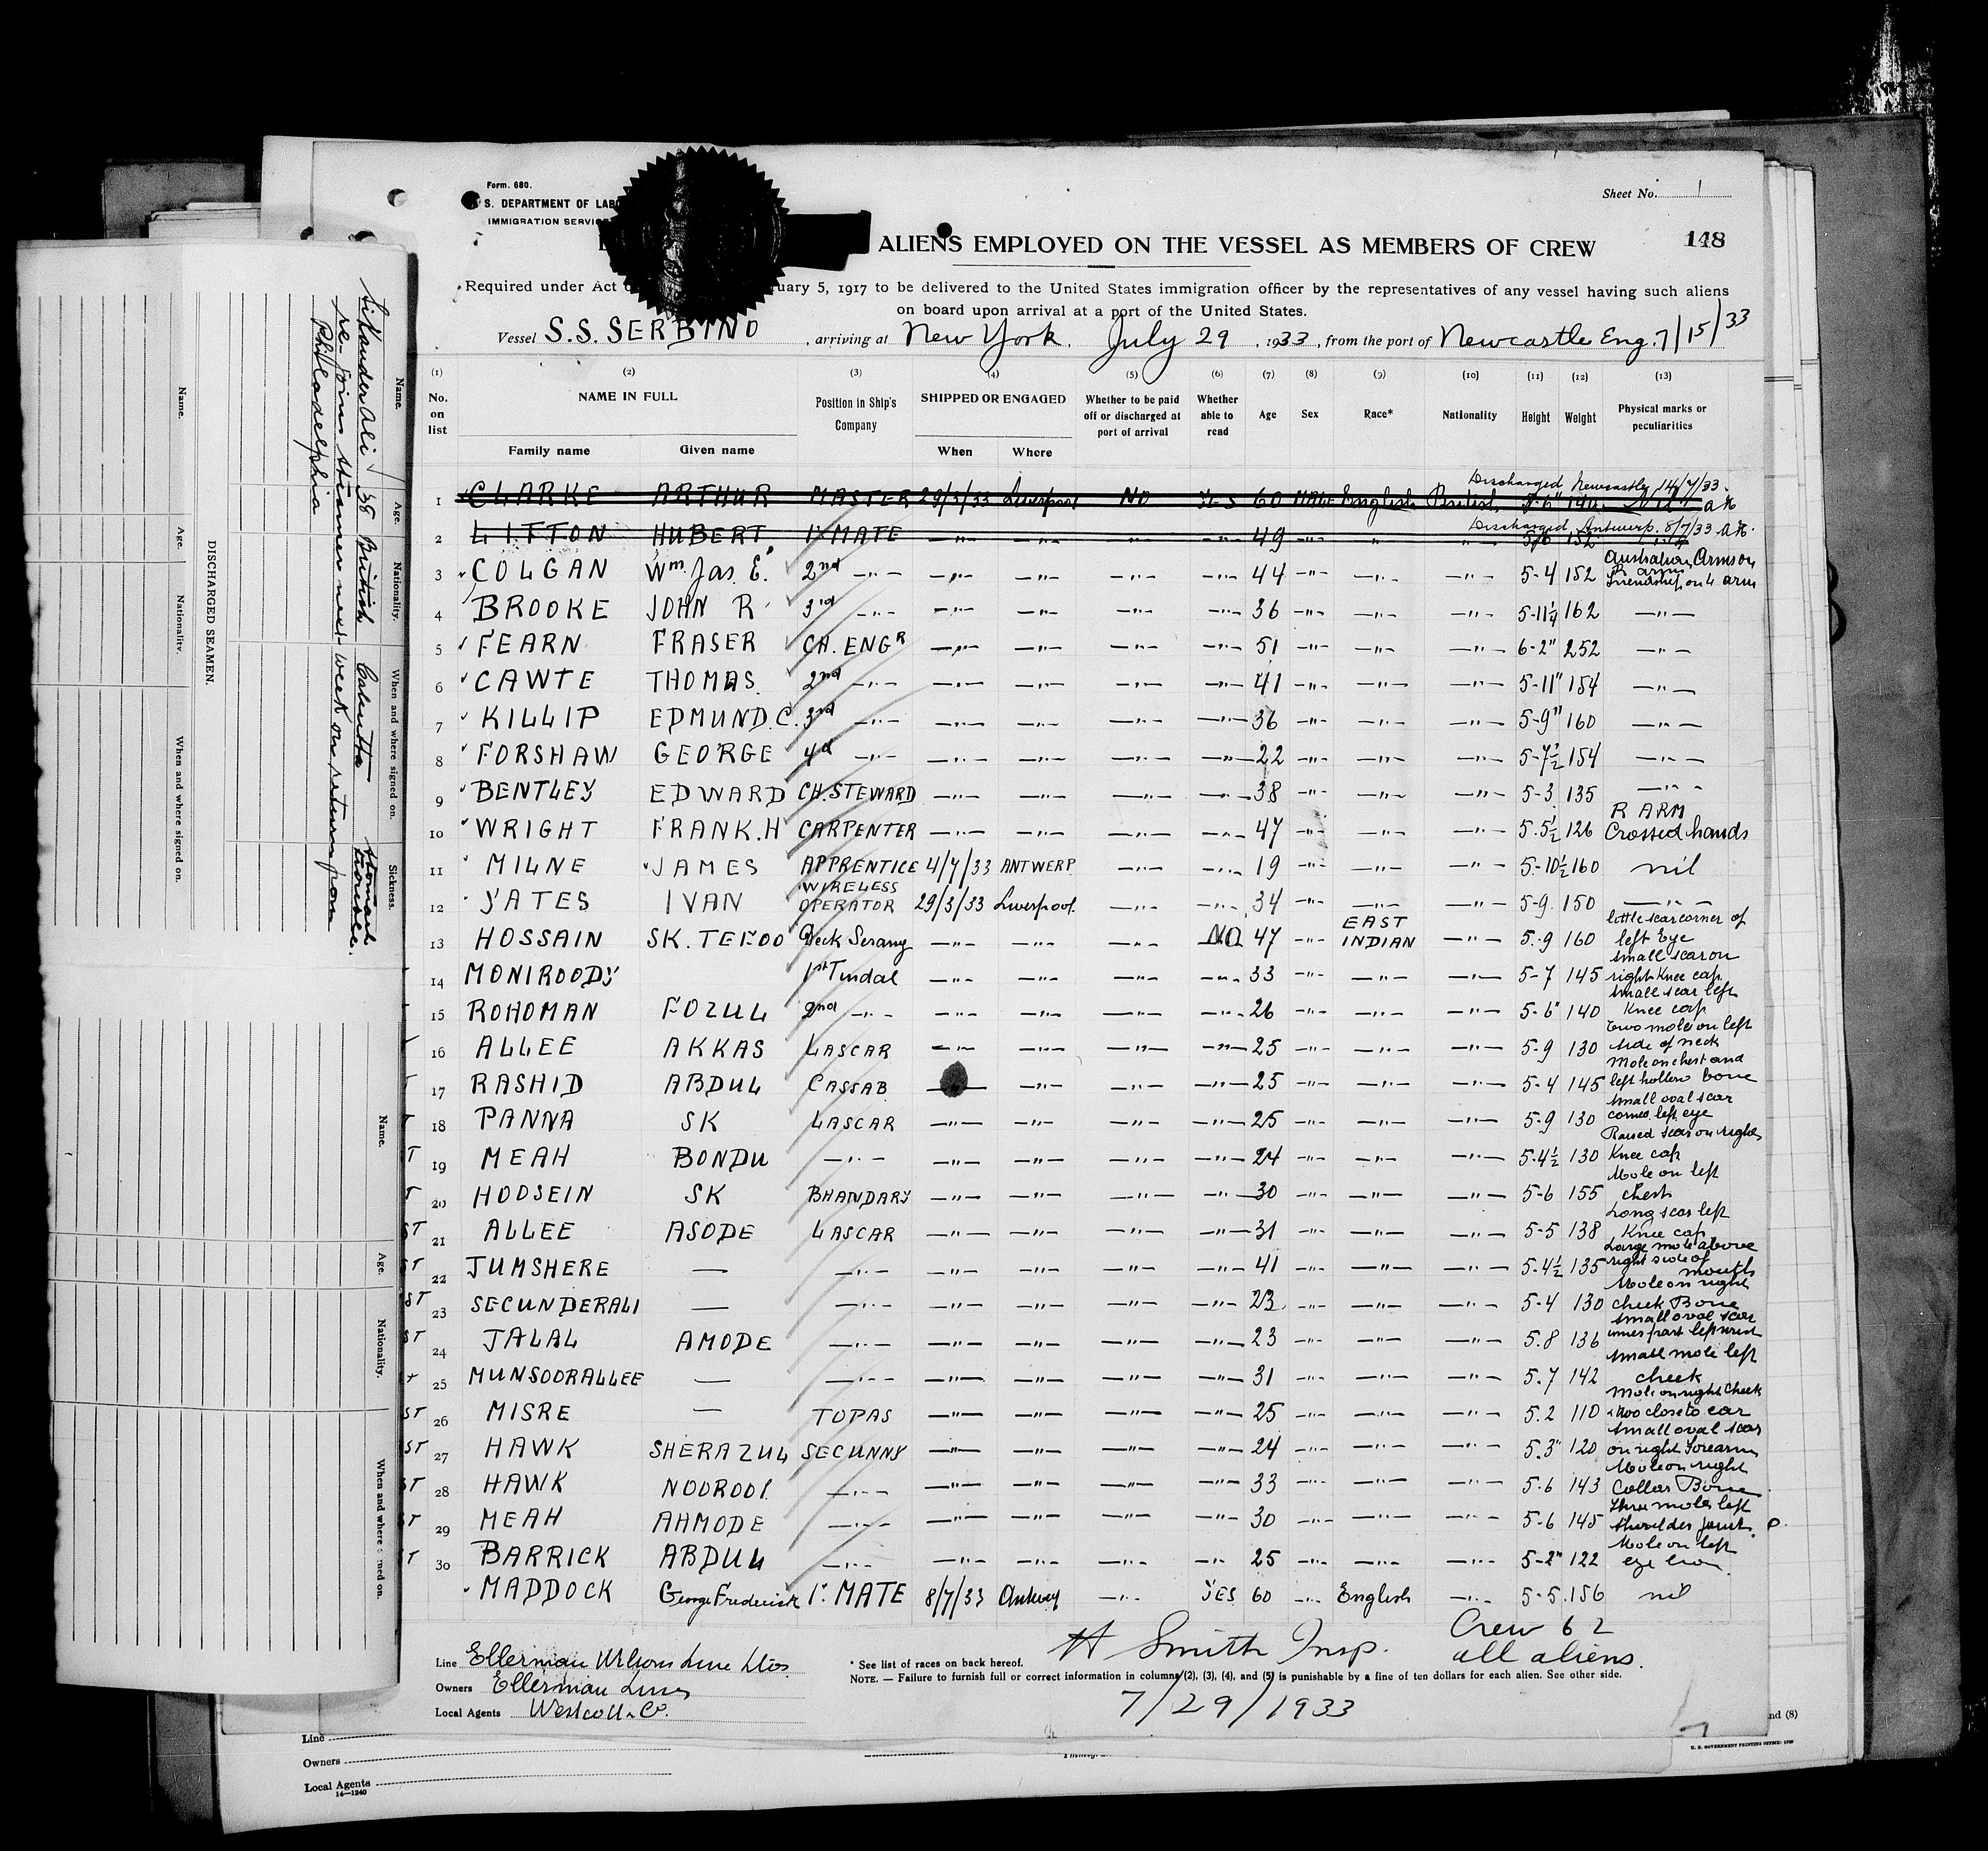 Form. 680.
S. DEPARTMENT OF LAB
IMMIGRATION SERVICE
Sheet No. 1
ALIENS EMPLOYED ON THE VESSEL AS MEMBERS OF CREW
148
Required under Act uary 5, 1917 to be delivered to the United States immigration officer by the representatives of any vessel having such aliens
on board upon arrival at a port of the United States.
Vessel S.S. SERBINO , arriving at New York. July 29 , 1933 , from the port of Newcastle Eng. 7/15/33
(1) (2) (3) (4) (5) (6) (7) (8) (9) (10) (11) (12) (13)
No. on list NAME IN FULL Family name Given name Position in Ship's Company SHIPPED OR ENGAGED When Where Whether to be paid off or discharged at port of arrival Whether able to read Age Sex Race* Nationality Height Weight Physical marks or peculiarities
Discharged Newcastle 14/7/33.
1 CLARKE ARTHUR MASTER 29/3/33 Liverpool NO YES 60 MALE English British 5-6" 140
Discharged Antwerp. 8/7/33
2 LITTON HUBERT 1' MATE —"— —"— —"— —"— 49 " " " 5/6 152
3 COLGAN Wm. Jas. E. 2nd —"— —"— —"— —"— —"— 44 —"— —"— —"— 5-4 152 Australian Arms on R arm Friendship on L arm
4 BROOKE JOHN R 3rd —"— —"— —"— —"— —"— 36 —"— —"— —"— 5-11¼ 162 —"—
5 FEARN FRASER CH. ENGR —"— —"— —"— —"— 51 —"— —"— —"— 6-2" 252 —"—
6 CAWTE THOMAS. 2nd —"— —"— —"— —"— —"— 41 —"— —"— —"— 5-11" 154 —"—
7 KILLIP EDMUND. C. 3rd —"— —"— —"— —"— —"— 36 —"— —"— —"— 5-9" 160 —"—
8 FORSHAW GEORGE 4d —"— —"— —"— —"— —"— 22 —"— —"— —"— 5-7½ 154 —"—
9 BENTLEY EDWARD CH. STEWARD —"— —"— —"— —"— 38 —"— —"— —"— 5-3 135 —"—
10 WRIGHT FRANK. H CARPENTER —"— —"— —"— —"— 47 —"— —"— —"— 5.5½ 126 R ARM Crossed hands
11 MILNE JAMES APPRENTICE 4/7/33 ANTWERP —"— —"— 19 —"— —"— —"— 5-10½ 160 nil
12 YATES IVAN WIRELESS OPERATOR 29/3/33 Liverpool. —"— —"— 34 —"— —"— —"— 5-9. 150 —"—
13 HOSSAIN SK. TEFOO Deck Serang —"— —"— —"— NO 47 —"— EAST INDIAN —"— 5.-9 160 little scar corner of left Eye
14 MONIROODY 1st Tindal —"— —"— —"— —"— 33 —"— —"— —"— 5-7 145 small scar on right Knee cap
15 ROHOMAN FOZUL 2nd —"— —"— —"— —"— —"— 26 —"— —"— —"— 5-6" 140 small scar left Knee cap
16 ALLEE AKKAS LASCAR —"— —"— —"— —"— 25 —"— —"— —"— 5-9 130 two moles on left side of neck
17 RASHID ABDUL CASSAB —"— —"— —"— 25 —"— —"— —"— 5-4 145 Mole on chest and left hollow bone
18 PANNA SK LASCAR —"— —"— —"— —"— 25 —"— —"— —"— 5-9 130 small oval scar corner left eye
19 MEAH BONDU —"— —"— —"— —"— —"— 24 —"— —"— —"— 5-4½ 130 Raised scar on right Knee cap
20 HOOSEIN SK BHANDARY —"— —"— —"— —"— 30 —"— —"— —"— 5-6 155 Mole on left chest
ST 21 ALLEE ASODE LASCAR —"— —"— —"— —"— 31 —"— —"— —"— 5-5 138 Long scar left Knee cap
ST 22 JUMSHERE — —"— —"— —"— —"— —"— 41 —"— —"— —"— 5-4½ 135 Large mole above right side of mouth
ST 23 SECUNDERALI — —"— —"— —"— —"— —"— 23 —"— —"— —"— 5-4 130 Mole on right cheek Bone
ST 24 JALAL AMODE —"— —"— —"— —"— —"— 23 —"— —"— —"— 5.8 136 small oval scar inner part left wrist
25 MUNSOORALLEE — —"— —"— —"— —"— —"— 31 —"— —"— —"— 5.7 142 small mole left cheek
ST 26 MISRE — TOPAS —"— —"— —"— —"— 25 —"— —"— —"— 5.2 110 Mole on right cheek too close to ear
ST 27 HAWK SHERAZUL SECUNNY —"— —"— —"— —"— 24 —"— —"— —"— 5.3" 120 small oval scar on right forearm
ST 28 HAWK NOOROOL —"— —"— —"— —"— —"— 33 —"— —"— —"— 5.6 143 Mole on right Collar Bone
ST 29 MEAH AHMODE —"— —"— —"— —"— —"— 30 —"— —"— —"— 5-6 145 Three moles left shoulder joint.
ST 30 BARRICK ABDUL —"— —"— —"— —"— —"— 25 —"— —"— —"— 5-2" 122 Mole on left eye brow
MADDOCK George Frederick 1' MATE 8/7/33 Antwerp —"— YES 60 —"— English —"— 5-5. 156 nil
Crew 62
all aliens.
H Smith Insp.
7/29/1933
Line Ellerman Wilson Line
Owners Ellerman Lines
Local Agents Westcott & Co.
* See list of races on back hereof.
NOTE. — Failure to furnish full or correct information in columns (2), (3), (4), and (5) is punishable by a fine of ten dollars for each alien. See other side.
nd (8)
U. S. GOVERNMENT PRINTING OFFICE:
Line
Owners
Local Agents
14—1240
Name. Age. Nationality. When and where signed on. Sickness.
Sikander Ali 38 British Calcutta stomach trouble.
re-joins steamer next week on return from
Philadelphia
DISCHARGED SEAMEN.
Name. Age. Nationality. When and where signed on.
Name. Age. Nationality. When and where signed on.